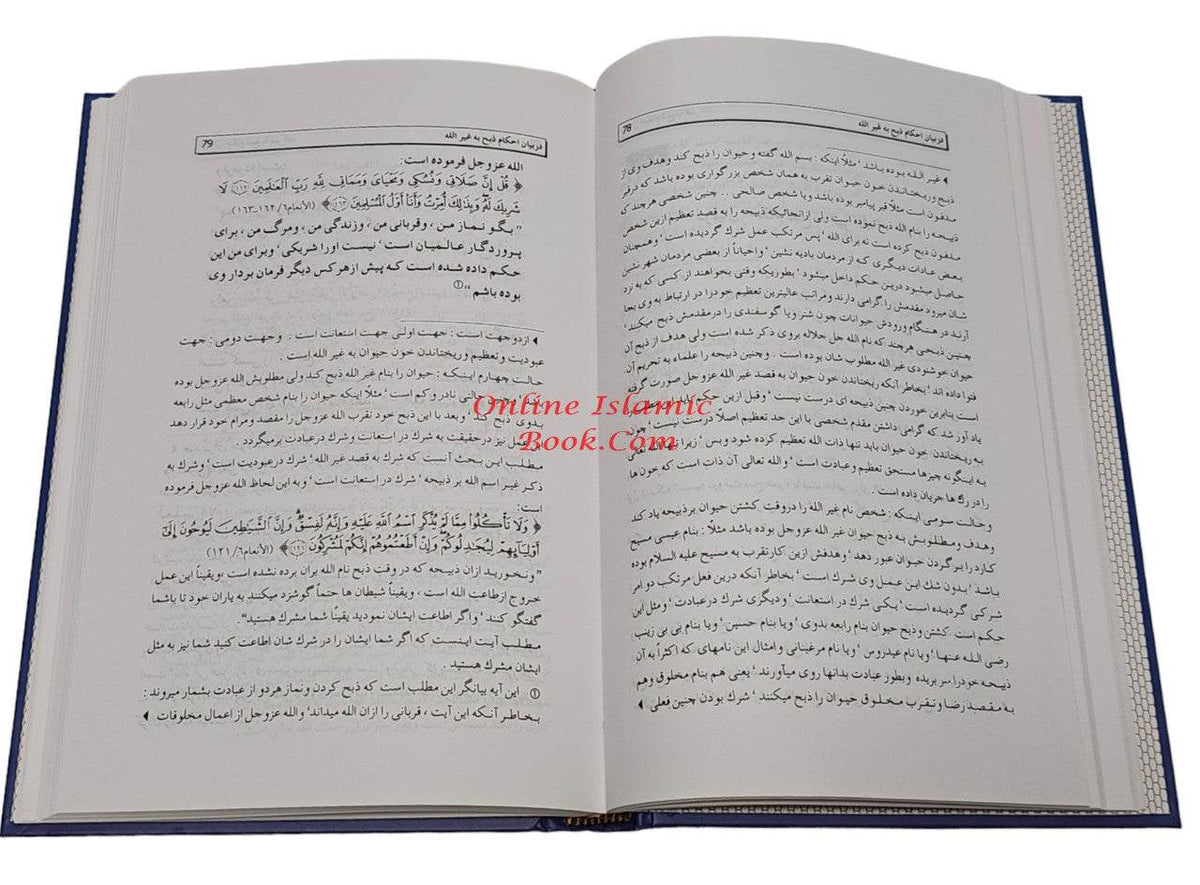 دربیان احکام ذبح به غیر الله
78
غیر الـلـه بوده بـاشد ‘ مثلاً اینکه : بسم الله گفته وحیوان را ذبح کند وهدف وی از
ذبح وریختاندن خون حیوان تقرب به همان شخص بزرگواری بوده باشد که درقبر
مدفون است مثلاً قبر پیامبر بوده باشد ویا شخص صالحی .. چنین شخصی هرچند که
ذبیحه را بنام الله ذبح نموده است ولی ازانجائیکه ذبیحه را به قصد تعظیم ازین شخص
مدفون ذبح کرده است نه برای الله ‘ پس مرتکب عمل شرك گردیده است ‘ وهمچنان
بعض عادات دیگری که از مردمان بادیه نشین ‘ واحیاناً از بعضی مردمان شهر نشین
حاصل میشود درین حکم داخل میشود ‘ بطوریکه وقتی بخواهند از کسی که به نزد
شان میرود مقدمش را گرامی دارند ومراتب عالیترین تعظیم خودرا در ارتباط به وی بجا
آرند در هنگام ورودش حیوانات چون شتر ویا گوسفندی را درمقدمش ذبح میکند ‘
چنین ذبحی هرچند که نام الله جل جلاله بروی ذکر شده است ولی هدف از ذبح آن
حیوان خوشنودی غیر الله مطلوب شان بوده است . وچنین ذبیحه را علماء به تحریم آن
فتوا داده اند ‘ بخاطر آنکه ریختاندن خون حیوان به قصد غیر الله عزوجل صورت گرفته
است بنابرین خوردن چنین ذبیحه ای درست نیست ‘ وقبل ازین حکم
یاد آور شد که گرامی داشتن مقدم شخصی با این حد تعظیم اصلاً درست نیست ‘ چون
بـه ریختاندن خون حیوان باید تنها ذات الله تعظیم کرده شود وبس ‘ زیرا
بـه اینگونه چیزها مستحق تعظیم وعبادت است ‘ والله تعالی آن ذات است که خون ها
را در رك ها جریان داده است .
وحالت سومی اینکه : شخص نام غیر الله را دروقت کشتن حیوان برذبیحه یاد کند
وهدف ومطلوبش به ذبح حیوان غیر الله عزوجل بوده باشد مثلاً : بنام عیسی مسیح
کارد را برگردن حیوان عبور دهد ‘ وهدفش ازین کارتقرب به مسیح علیه السلام بوده
بـاشد ‘ بـدون شك این عـمـل وی شرك است ‘ بخاطر آنکه درین فعل مرتکب دو امر
شرکی گردیده است ‘ یـکی شرك در استعانت ‘ ودیگری شرك درعبادت ‘ و مثل این
حکم است کشتن وذبح حیوان بنام رابعه بدوی ‘ ویا بنام حسین ‘ ویا بنام بی بی زینب
رضی الـلـه عنـهـا ‘ ویا نام عیدروس ‘ ویا نام مرغینانی و امثال این نامهای که اکثراً به آن
ذبیحه خودرا سر بریده وبطور عبادت بدانها روی میآورند ‘ یعنی هم بنام مخلوق وهم
بـه مـقـصـد رضا وتـقـرب مـخـلوق حیـوان را ذبح میکنند ‘ شرك بودن چنین فعلی
دربیان احکام ذبح به غیر الله
79
الله عزوجل فرموده است:
﴿ قُلْ إِنَّ صَلَاتِي وَنُسُكِي وَمَحْيَايَ وَمَمَاتِي لِلَّهِ رَبِّ الْعَالَمِينَ ۝١٦٢ لَا
شَرِيكَ لَهُ وَبِذَلِكَ أُمِرْتُ وَأَنَا أَوَّلُ الْمُسْلِمِينَ ۝١٦٣ ﴾ (الأنعام٦/١٦٢-١٦٣)..
" بـگـو نـمـاز مـن ، وقربانی من ، وزندگی من ، ومرگ من ، برای
پروردگار عالـمـیـان اسـت ‘ نیست اورا شریکی ‘ وبرای من این
حکم داده شده است کـه پیش ازهرکس دیگر فرمان بردار وی
بوده باشم " ①
ازدوجهت اسـت : جهت اولـی جهت استعانت است . وجـهـت دومی : جهت
عبودیت وتعظیم وریختاندن خون حیوان به غیر الله است .
حـالت چهارم اینـکـه : حیوان را بنام غیر الله ذبح کند ولی مطلوبش الله عزوجل بوده
نادر وکم است ‘ مثلاً اینکه حیوان را بنام شخص معظمی مثل رابعه
بدوی ذبح کند ‘ وبعد با این ذبح خود تقرب الله عزوجل را مقصد ومرام خود قرار دهد
این عمل نیز درحقیقت به شرك در استعانت وشرك درعبادت برمیگردد .
مـطـلـب ایـن بـحث آنست که شرك به قصد غیر الله ‘ شرك درعبودیت است ‘ وشرك به
ذکر غیـر اسم الله بر ذبیحه ‘ شرك در استعانت است ‘ وبه این لحاظ الله عزوجل فرموده
است :
﴿ وَلَا تَأْكُلُوا مِمَّا لَمْ يُذْكَرِ اسْمُ اللَّهِ عَلَيْهِ وَإِنَّهُ لَفِسْقٌ وَإِنَّ الشَّيَاطِينَ لَيُوحُونَ إِلَى
أَوْلِيَائِهِمْ لِيُجَادِلُوكُمْ وَإِنْ أَطَعْتُمُوهُمْ إِنَّكُمْ لَمُشْرِكُونَ ۝١٢١ ﴾ (الأنعام٦/١٢١)
" ونـخـوریـد ازان ذبیحه که در وقت ذبح نام الله بران برده نشده است ،ویقیناً این عمل
خروج ازطاعت الله است ، ویقیناً شیطان ها حتماً گوشزد میکنند به یاران خود تا باشما
گفتگو کنند ‘ واگر اطاعت ایشان نمودید یقینا شما مشرك هستید".
مـطـلـب آیـت ایـنـسـت که اگر شما ایشان را در شرك شان اطاعت کنید شما نیز به مثل
ایشان مشرك هستید .
① این آیه بیانگر این مطلب است که ذبح کردن ونماز هردو از عبادت بشمار میروند :
بـخاطر آنکه این آیت ، قربانی را ازان الله میداند ‘ والله عزوجل از اعمال مخلوقات
Online Islamic
Book.Com